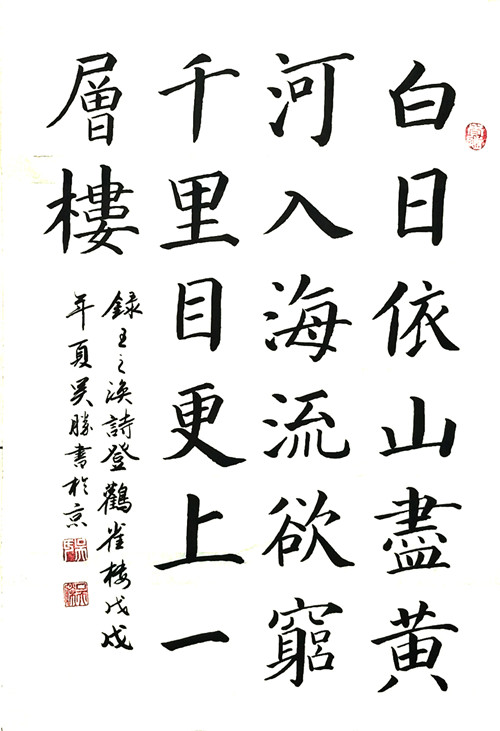 白日依山盡黄
河入海流欲窮
千里目更上一
層樓
録王之渙詩登鸛雀樓戊戌
年夏吴勝書於京